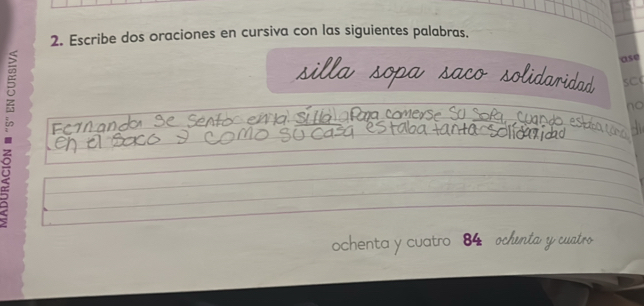 2. Escribe dos oraciones en cursiva con las siguientes palabras.
silla sopa saco solidaridad
Fernanda se sento en la silla para comerse su sopa, cuando estaba
en el saco y como su casa estaba tanta solidaridad
ochenta y cuatro 84 ochenta y cuatro
MADURACIÓN ■ "S" EN CURSIVA